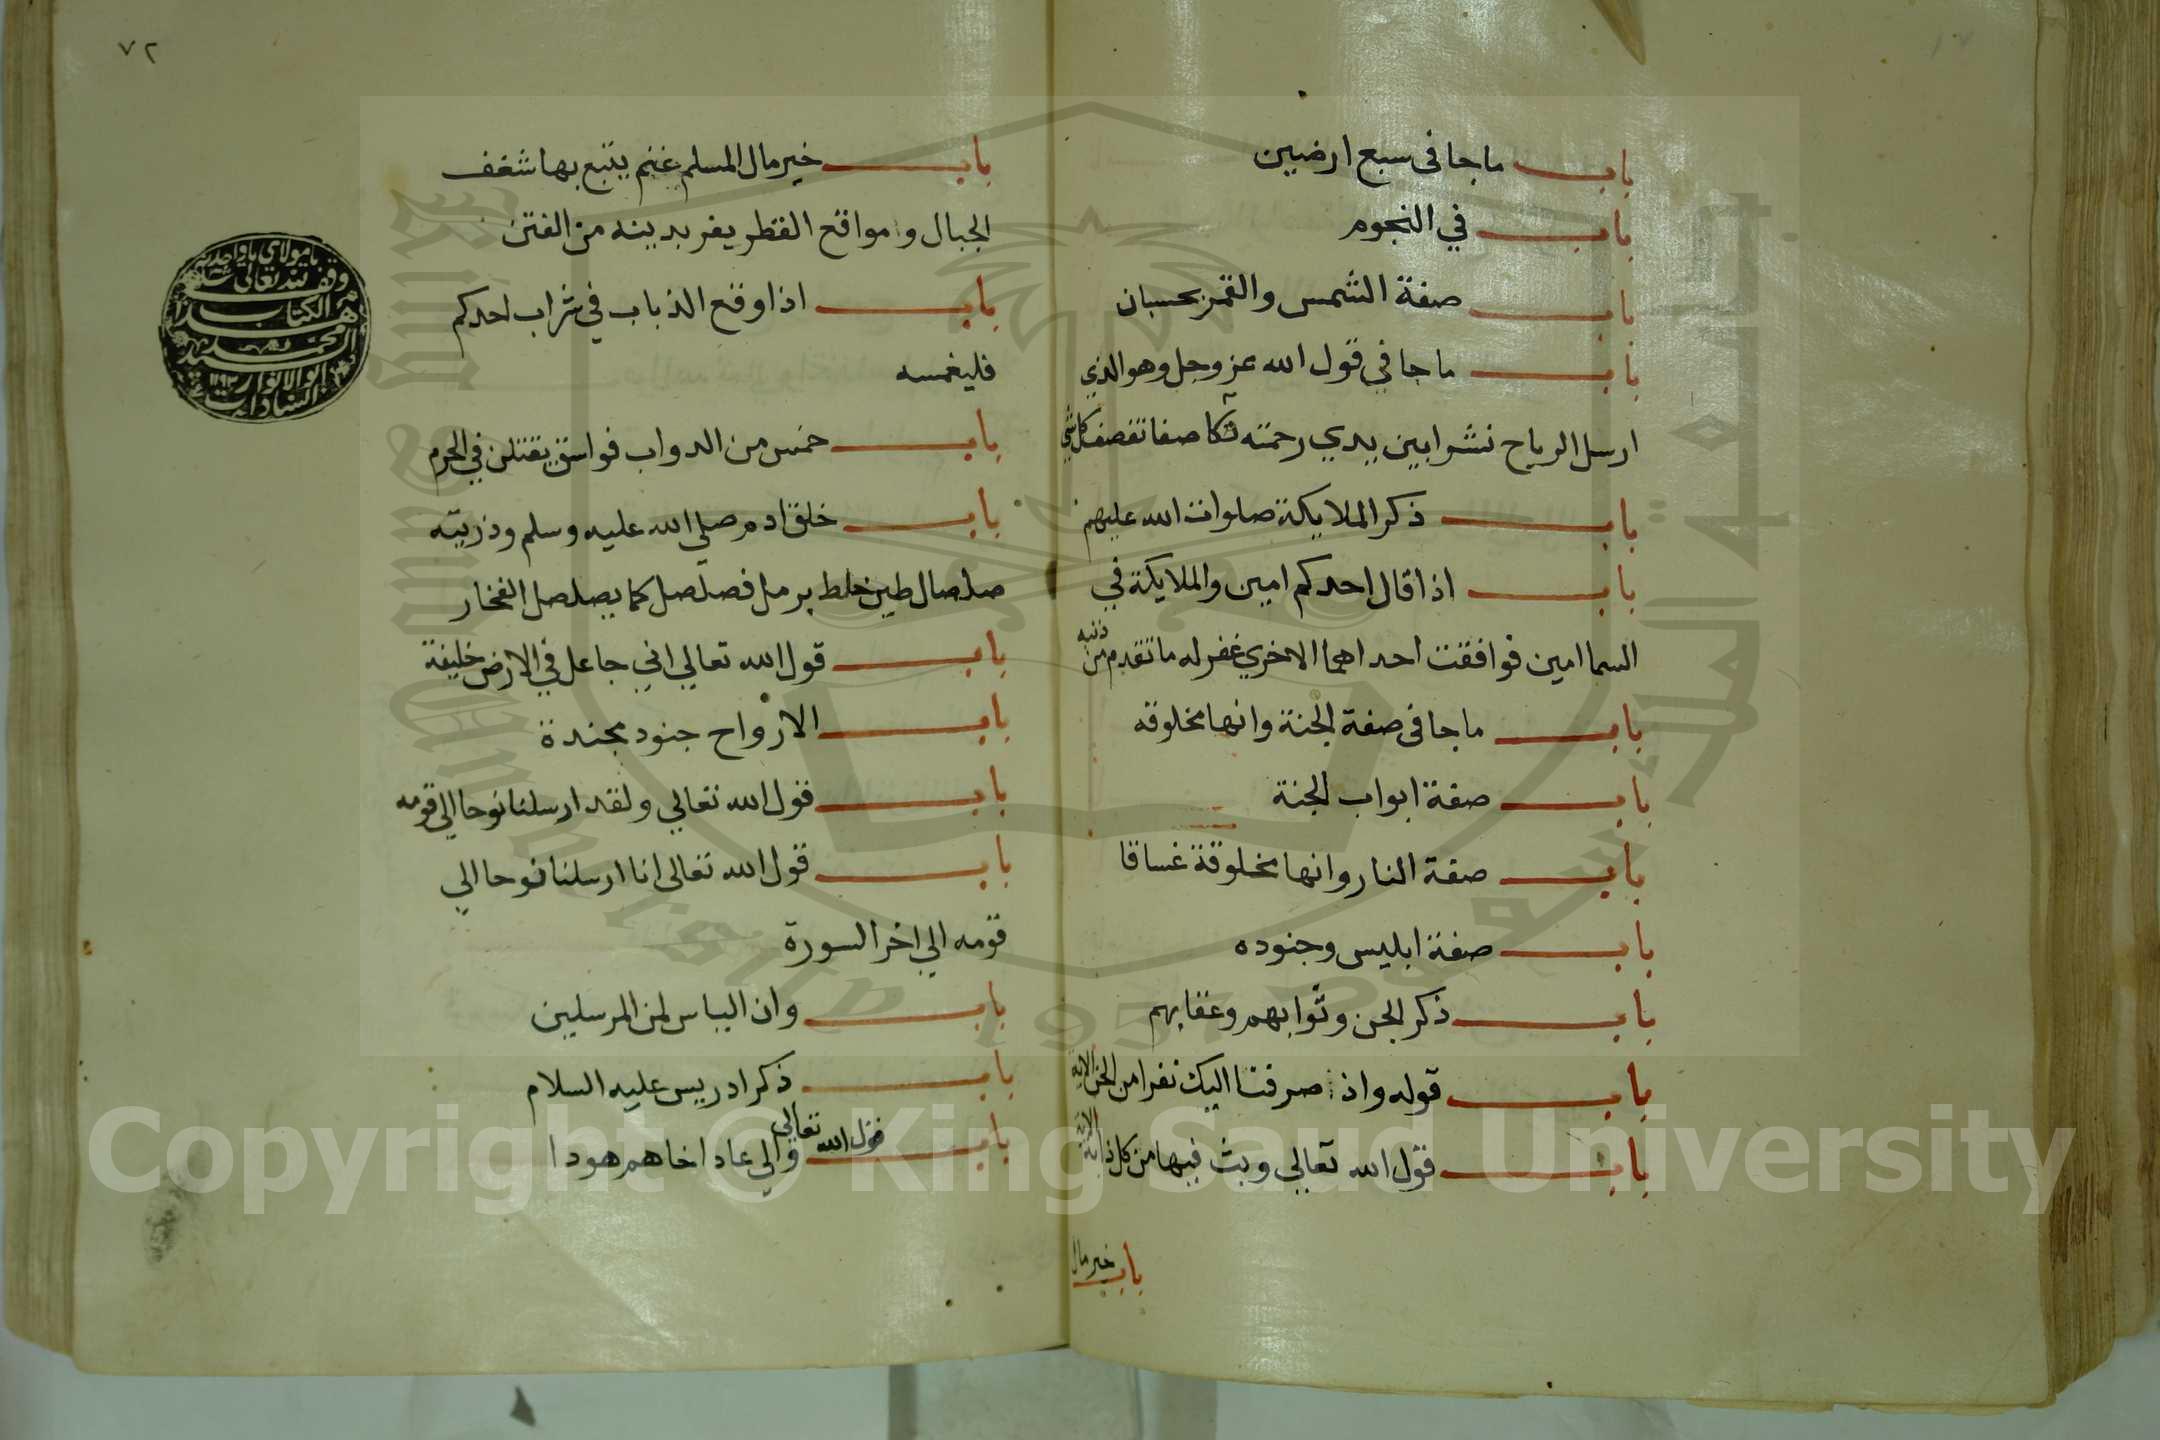 باب ما جا فى سبع ارضين
باب في النجوم
باب صفة الشمس والقمر بحسبان
باب ما جا في قول الله عز وجل وهو الذي
ارسل الرياح نشرا بين يدي رحمته قاصفا تقصف كل شي
باب ذكر الملايكة صلوات الله عليهم
باب اذا قال احدكم امين والملايكة في
السما امين فوافقت احداهما الاخري غفر له ما تقدم من ذنبه
باب ما جا فى صفة الجنة وانها مخلوقه
باب صفة ابواب الجنة
باب صفة النار وانها مخلوقة غساقا
باب صفة ابليس وجنوده
باب ذكر الجن وثوابهم وعقابهم
باب قوله واذ صرفنا اليك نفرا من الجن الاية
باب قول الله تعالي وبث فيها من كل دابة الاية
باب خير مال
٧٢
باب خير مال المسلم غنم يتبع بها شغف
الجبال ومواقع القطر يفر بدينه من الفتن
باب اذا وقع الذباب في شراب احدكم
فليغمسه
باب خمس من الدواب فواسق يقتلن في الحرم
باب خلق ادم صلي الله عليه وسلم وذريته
صلصال طين خلط برمل فصلصل كما يصلصل الفخار
باب قول الله تعالي اني جاعل في الارض خليفة
باب الارواح جنود مجندة
باب قول الله تعالي ولقد ارسلنا نوحا الي قومه
باب قول الله تعالى انا ارسلنا نوحا الي
قومه الي اخر السورة
باب وان الياس لمن المرسلين
باب ذكر ادريس عليه السلام
باب قول الله تعالى والي عاد اخاهم هودا
وقف لله تعالى
الكتاب
King Saud University 1957
Copyright © King Saud University